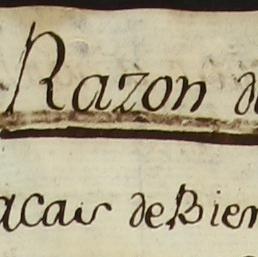 Razon de
acais de Bien